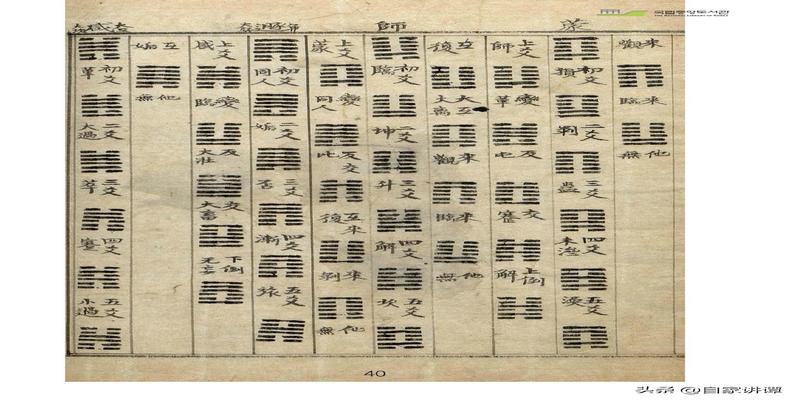 국립중앙도서관
THE NATIONAL LIBRARY OF KOREA
來觀
來臨
他無
蒙
初爻損
二爻剝
三爻蠱
四爻未濟
五爻渙
上爻師
變革
反屯
交蹇
上倒解
互復
大互大离
來觀
來臨
他無
師
初爻臨
二爻坤
三爻升
四爻解
五爻坎
上爻蒙
變同人
反交比
互來復
來剝
他無
初爻同人
二爻姤
三爻否
四爻漸
五爻旅
上爻咸
變臨
反大壯
交大畜
下倒无妄
互姤
他無
咸
初爻革
二爻大過
三爻萃
四爻蹇
五爻小過
40
头条 @自家讲谭